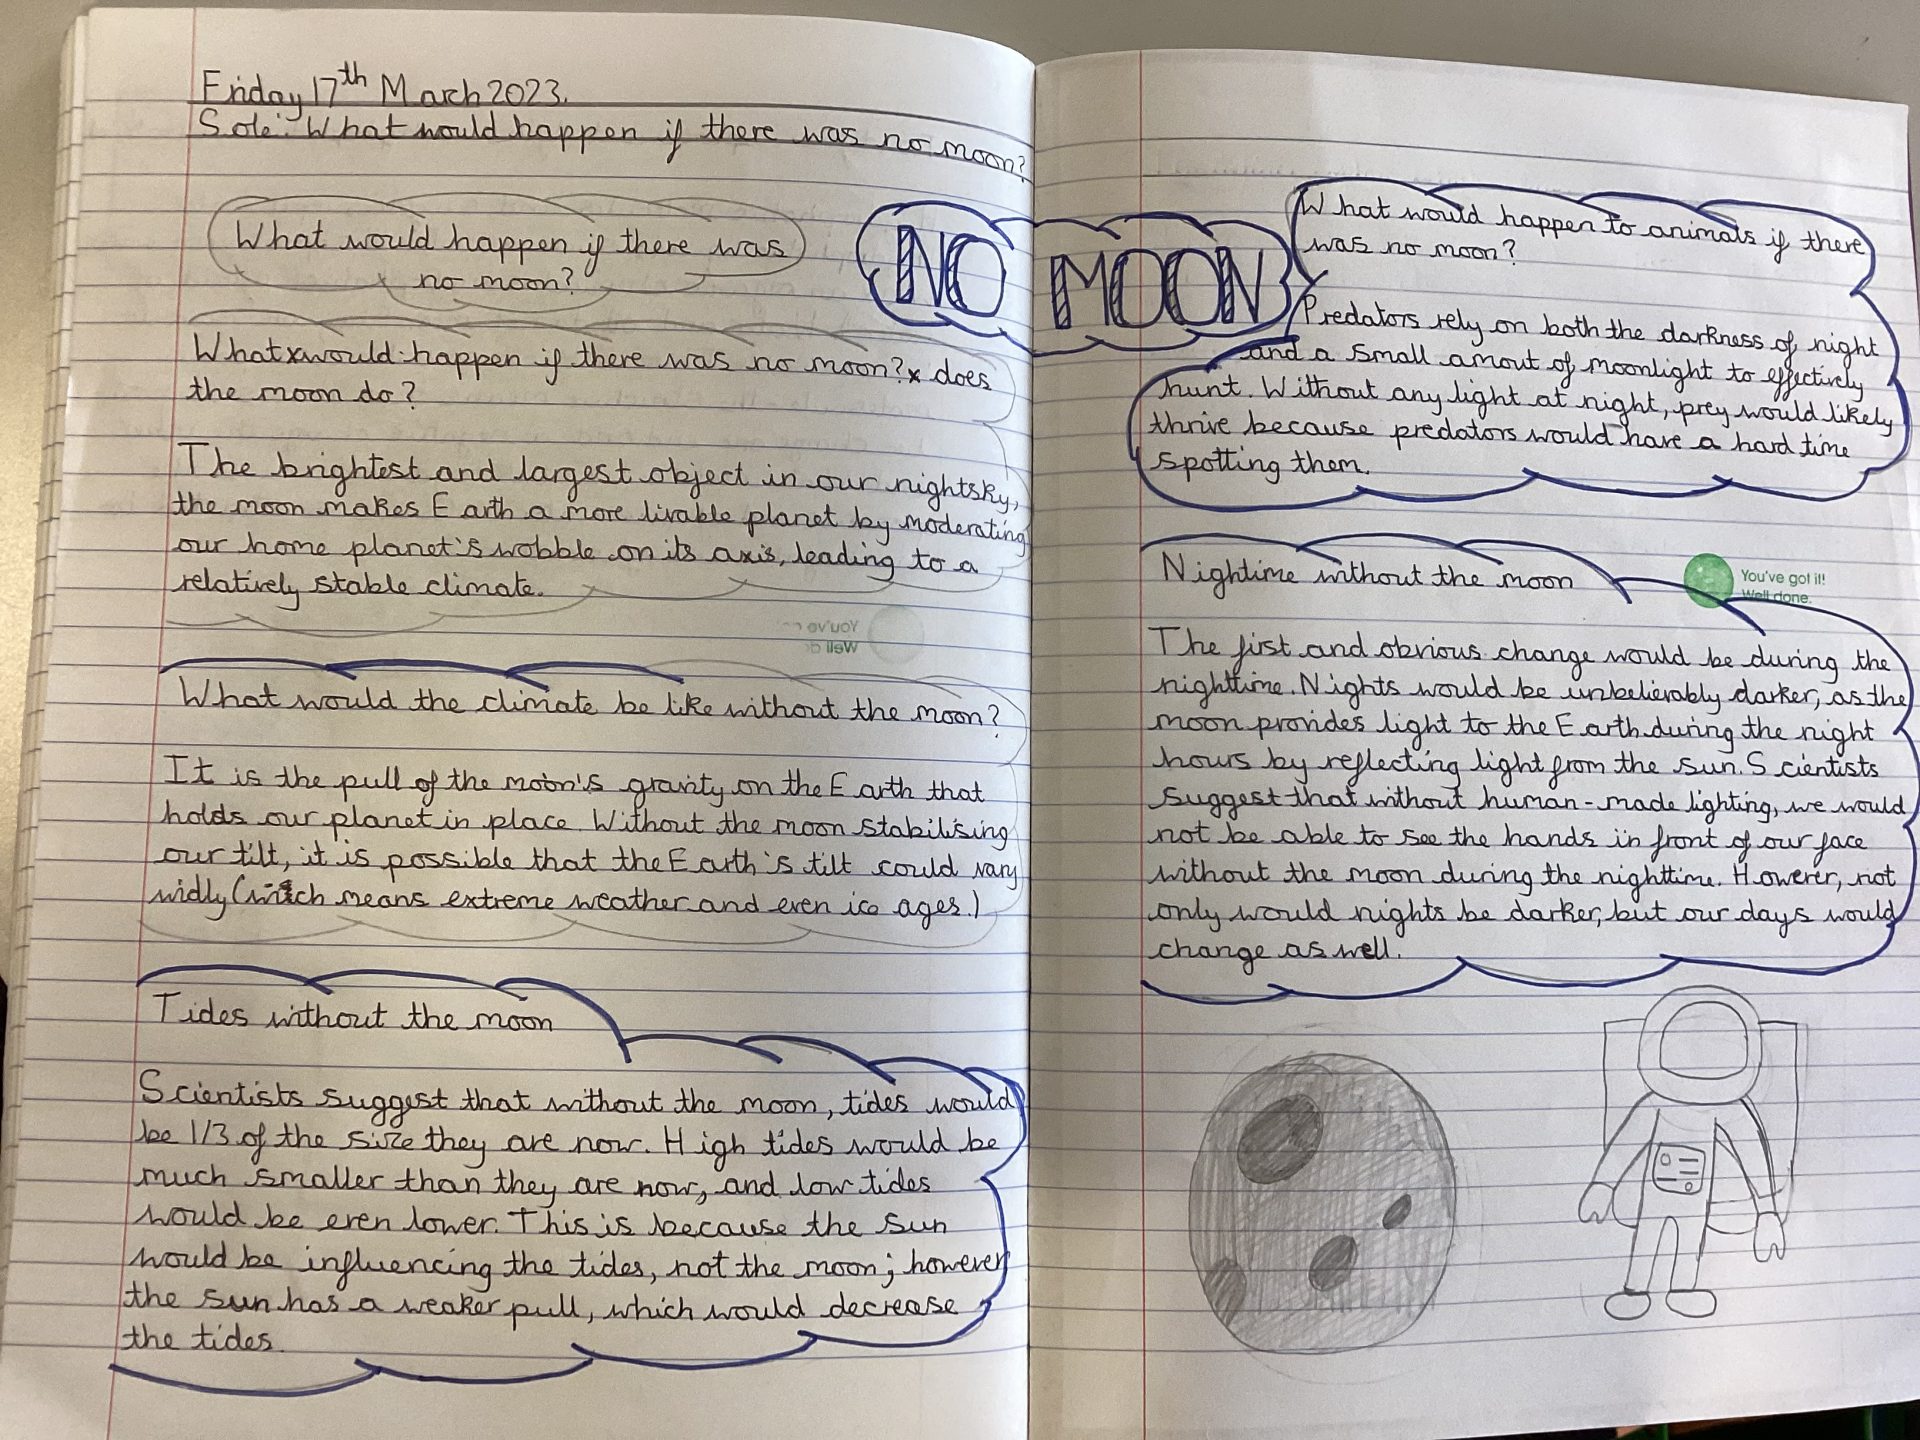 Friday 17th March 2023.
Sole: What would happen if there was no moon?
What would happen if there was
no moon?
What would happen if there was no moon? does
the moon do?
The brightest and largest object in our nightsky,
the moon makes Earth a more livable planet by moderating
our home planet's wobble on its axis, leading to a
relatively stable climate.
You've
Well
What would the climate be like without the moon?
It is the pull of the moon's gravity on the Earth that
holds our planet in place. Without the moon stabilising
our tilt, it is possible that the Earth's tilt could vary
widly (which means extreme weather and even ice ages.)
Tides without the moon
Scientists suggest that without the moon, tides would
be 1/3 of the size they are now. High tides would be
much smaller than they are now, and low tides
would be even lower. This is because the sun
would be influencing the tides, not the moon; however
the sun has a weaker pull, which would decrease
the tides.
NO MOON
What would happen to animals if there
was no moon?
Predators rely on both the darkness of night
and a small amout of moonlight to effectively
hunt. Without any light at night, prey would likely
thrive because predators would have a hard time
spotting them.
Nightime without the moon
You've got it!
Well done.
The first and obvious change would be during the
nighttime. Nights would be unbelievably darker, as the
moon provides light to the Earth during the night
hours by reflecting light from the sun. Scientists
suggest that without human-made lighting, we would
not be able to see the hands in front of our face
without the moon during the nighttime. However, not
only would nights be darker, but our days would
change as well.